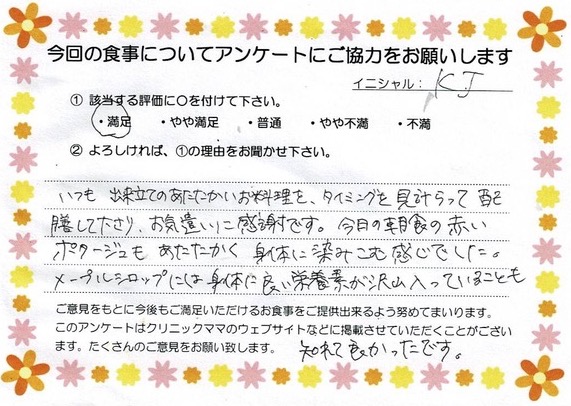 今回の食事についてアンケートにご協力をお願いします
イニシャル： KJ
① 該当する評価に○を付けて下さい。
・満足 ・やや満足 ・普通 ・やや不満 ・不満
② よろしければ、①の理由をお聞かせ下さい。
いつも 出来立てのあたたかいお料理を、タイミングを見計らって配
膳して下さり、お気遣いに感謝です。今日の朝食の赤い
ポタージュも あたたかく 身体に染みこむ感じでした。
メープルシロップには身体に良い栄養素が沢山入っていることも
ご意見をもとに今後もご満足いただけるお食事をご提供出来るよう努めてまいります。
このアンケートはクリニックママのウェブサイトなどに掲載させていただくことがござい
ます。たくさんのご意見をお願い致します。 知れて良かったです。